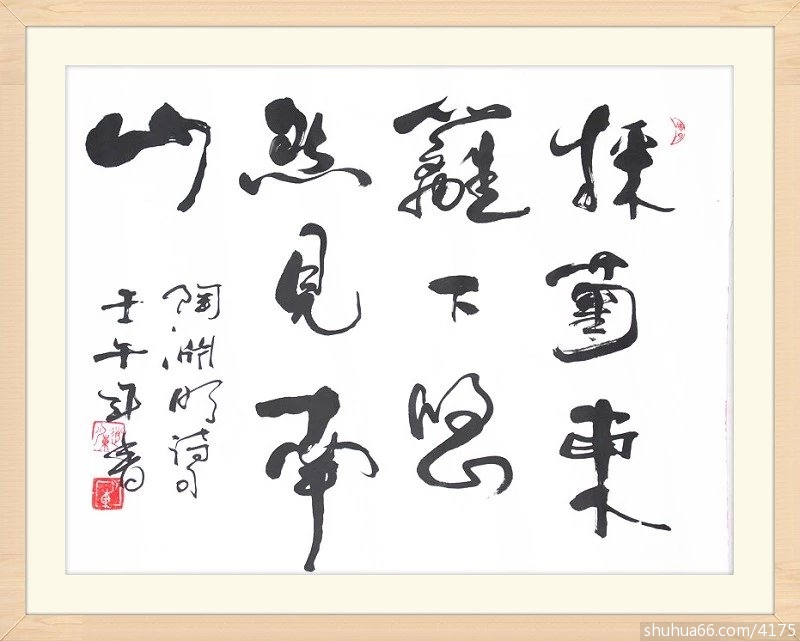 採菊東
籬下悠
然見南
山
陶淵明詩句
壬午年書
shuhua66.com/4175